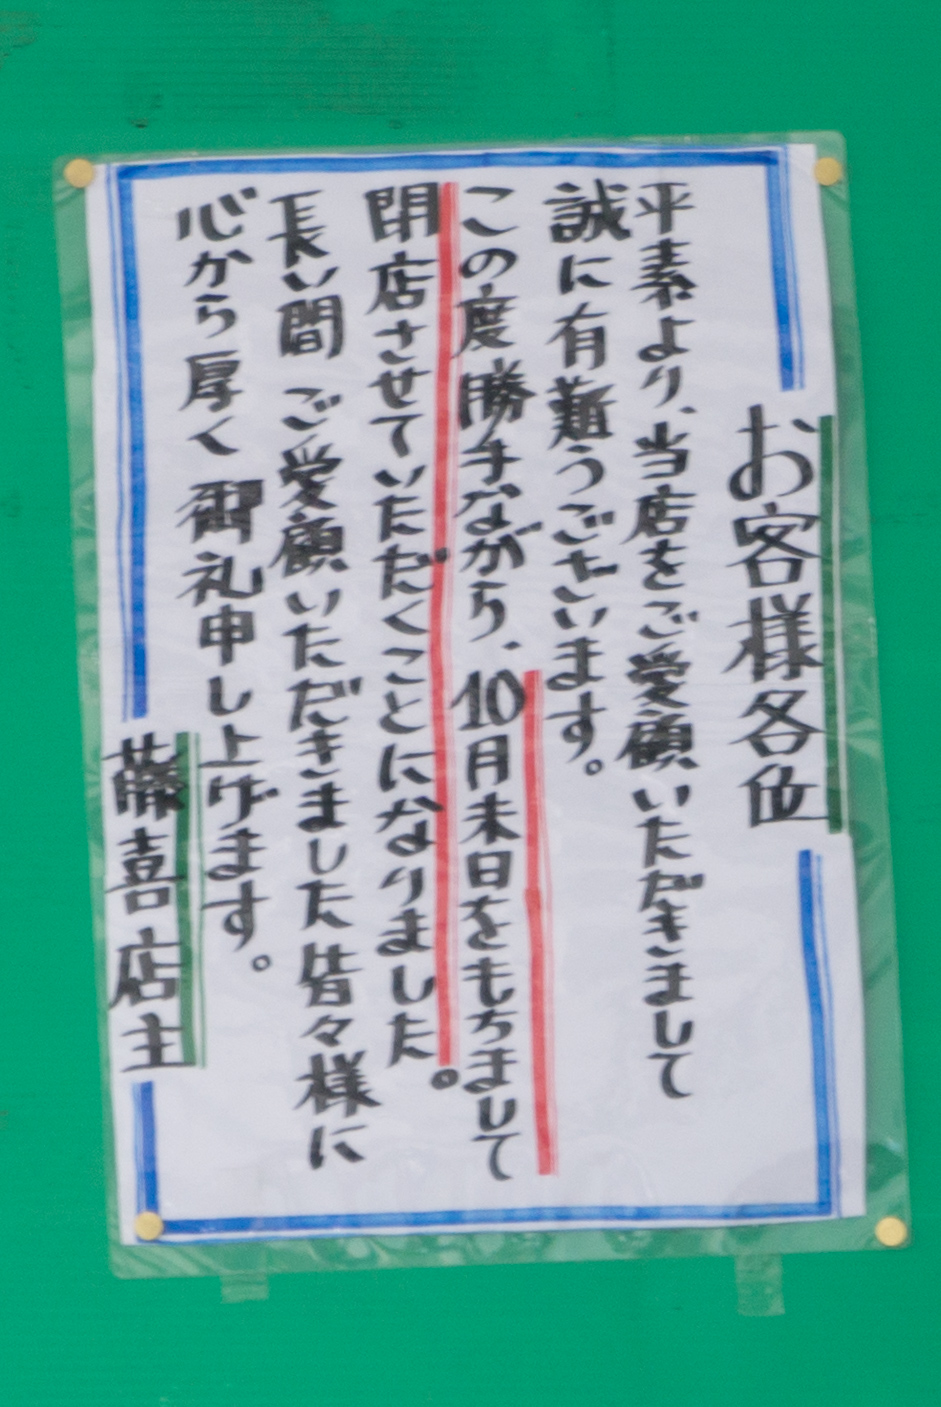 お客様各位
平素より、当店をご愛顧いただきまして
誠に有難うございます。
この度勝手ながら、10月末日をもちまして
閉店させていただくことになりました。
長い間 ご愛顧いただきました皆々様に
心から厚く 御礼申し上げます。
藤喜店主